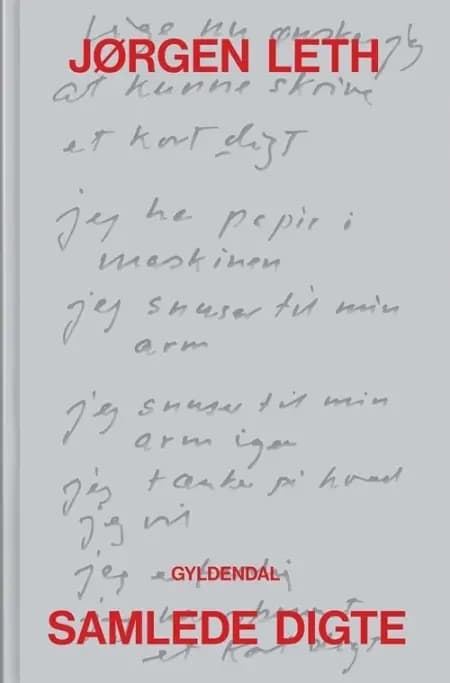 Lige nu ønsker jeg
JØRGEN LETH
at kunne skrive
et kort digt
jeg har papir i
maskinen
jeg snuser til min
arm
jeg snuser til min
arm igen
jeg tænker på hvad
jeg vil
jeg
GYLDENDAL
SAMLEDE DIGTE
et kort digt